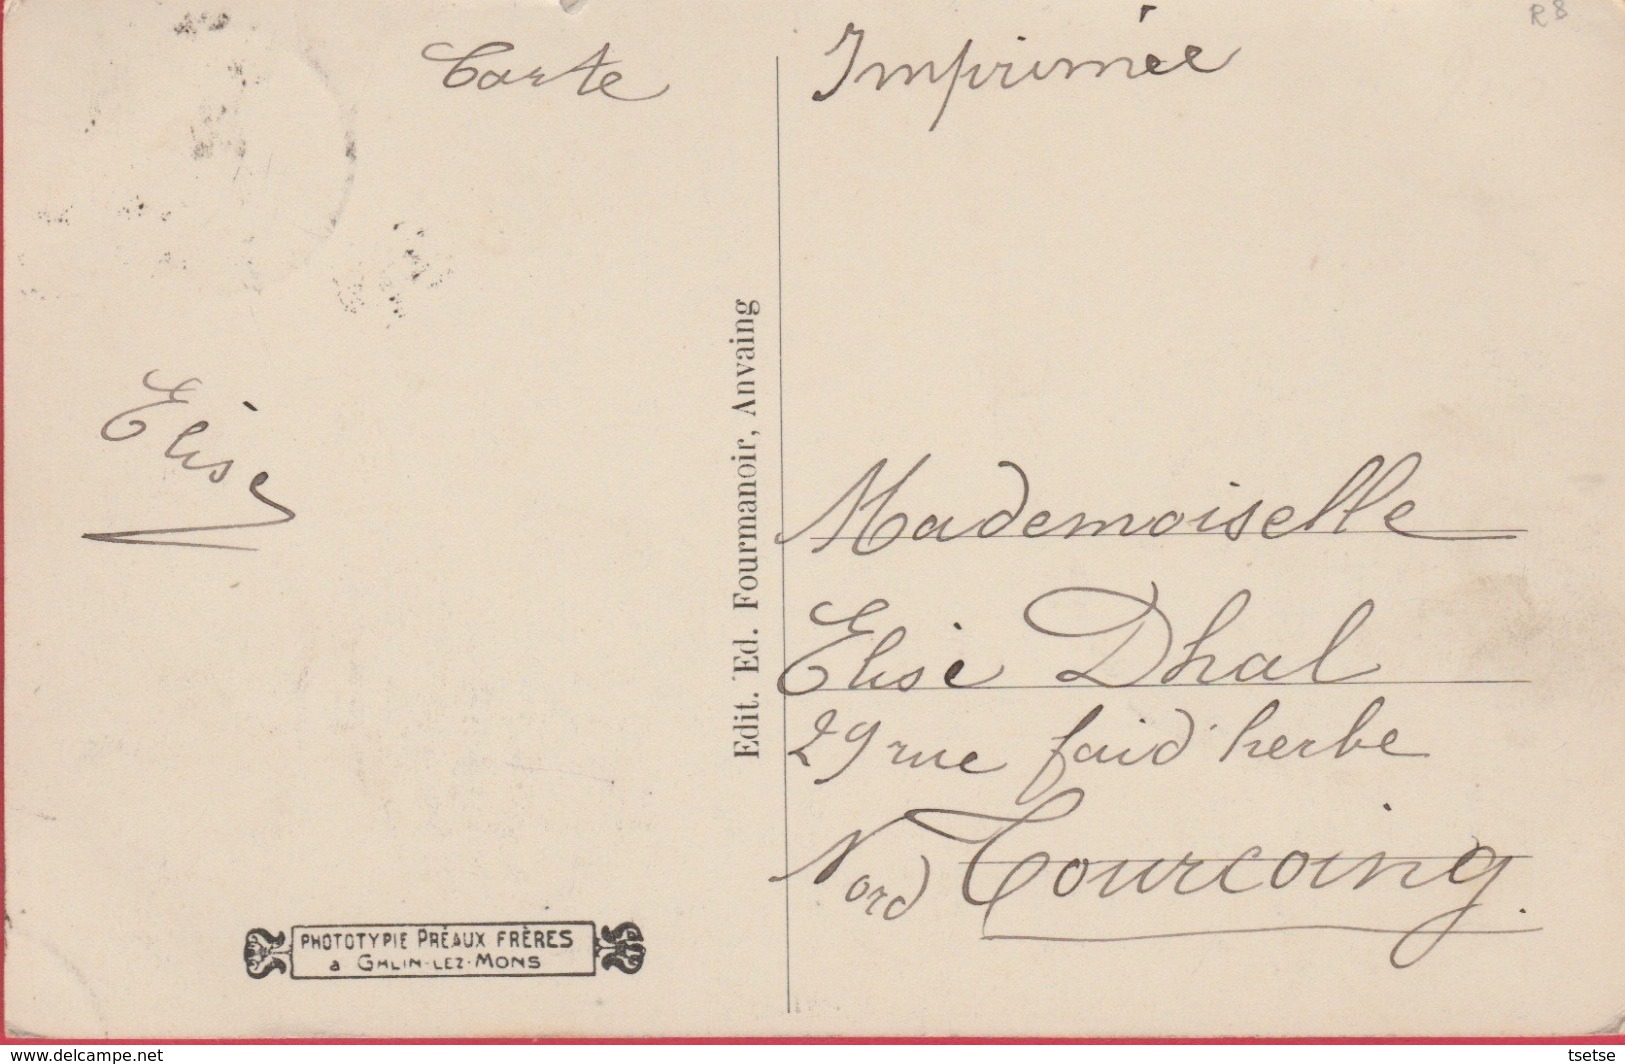 R 8
Carte Imprimée
Elise
Edit. Ed. Fourmanoir, Anvaing
Mademoiselle
Elise Dhal
29 rue faid'herbe
Nord Tourcoing.
PHOTOTYPIE PRÉAUX FRÈRES
a GHLIN-LEZ-MONS
www.delcampe.net
tsetse